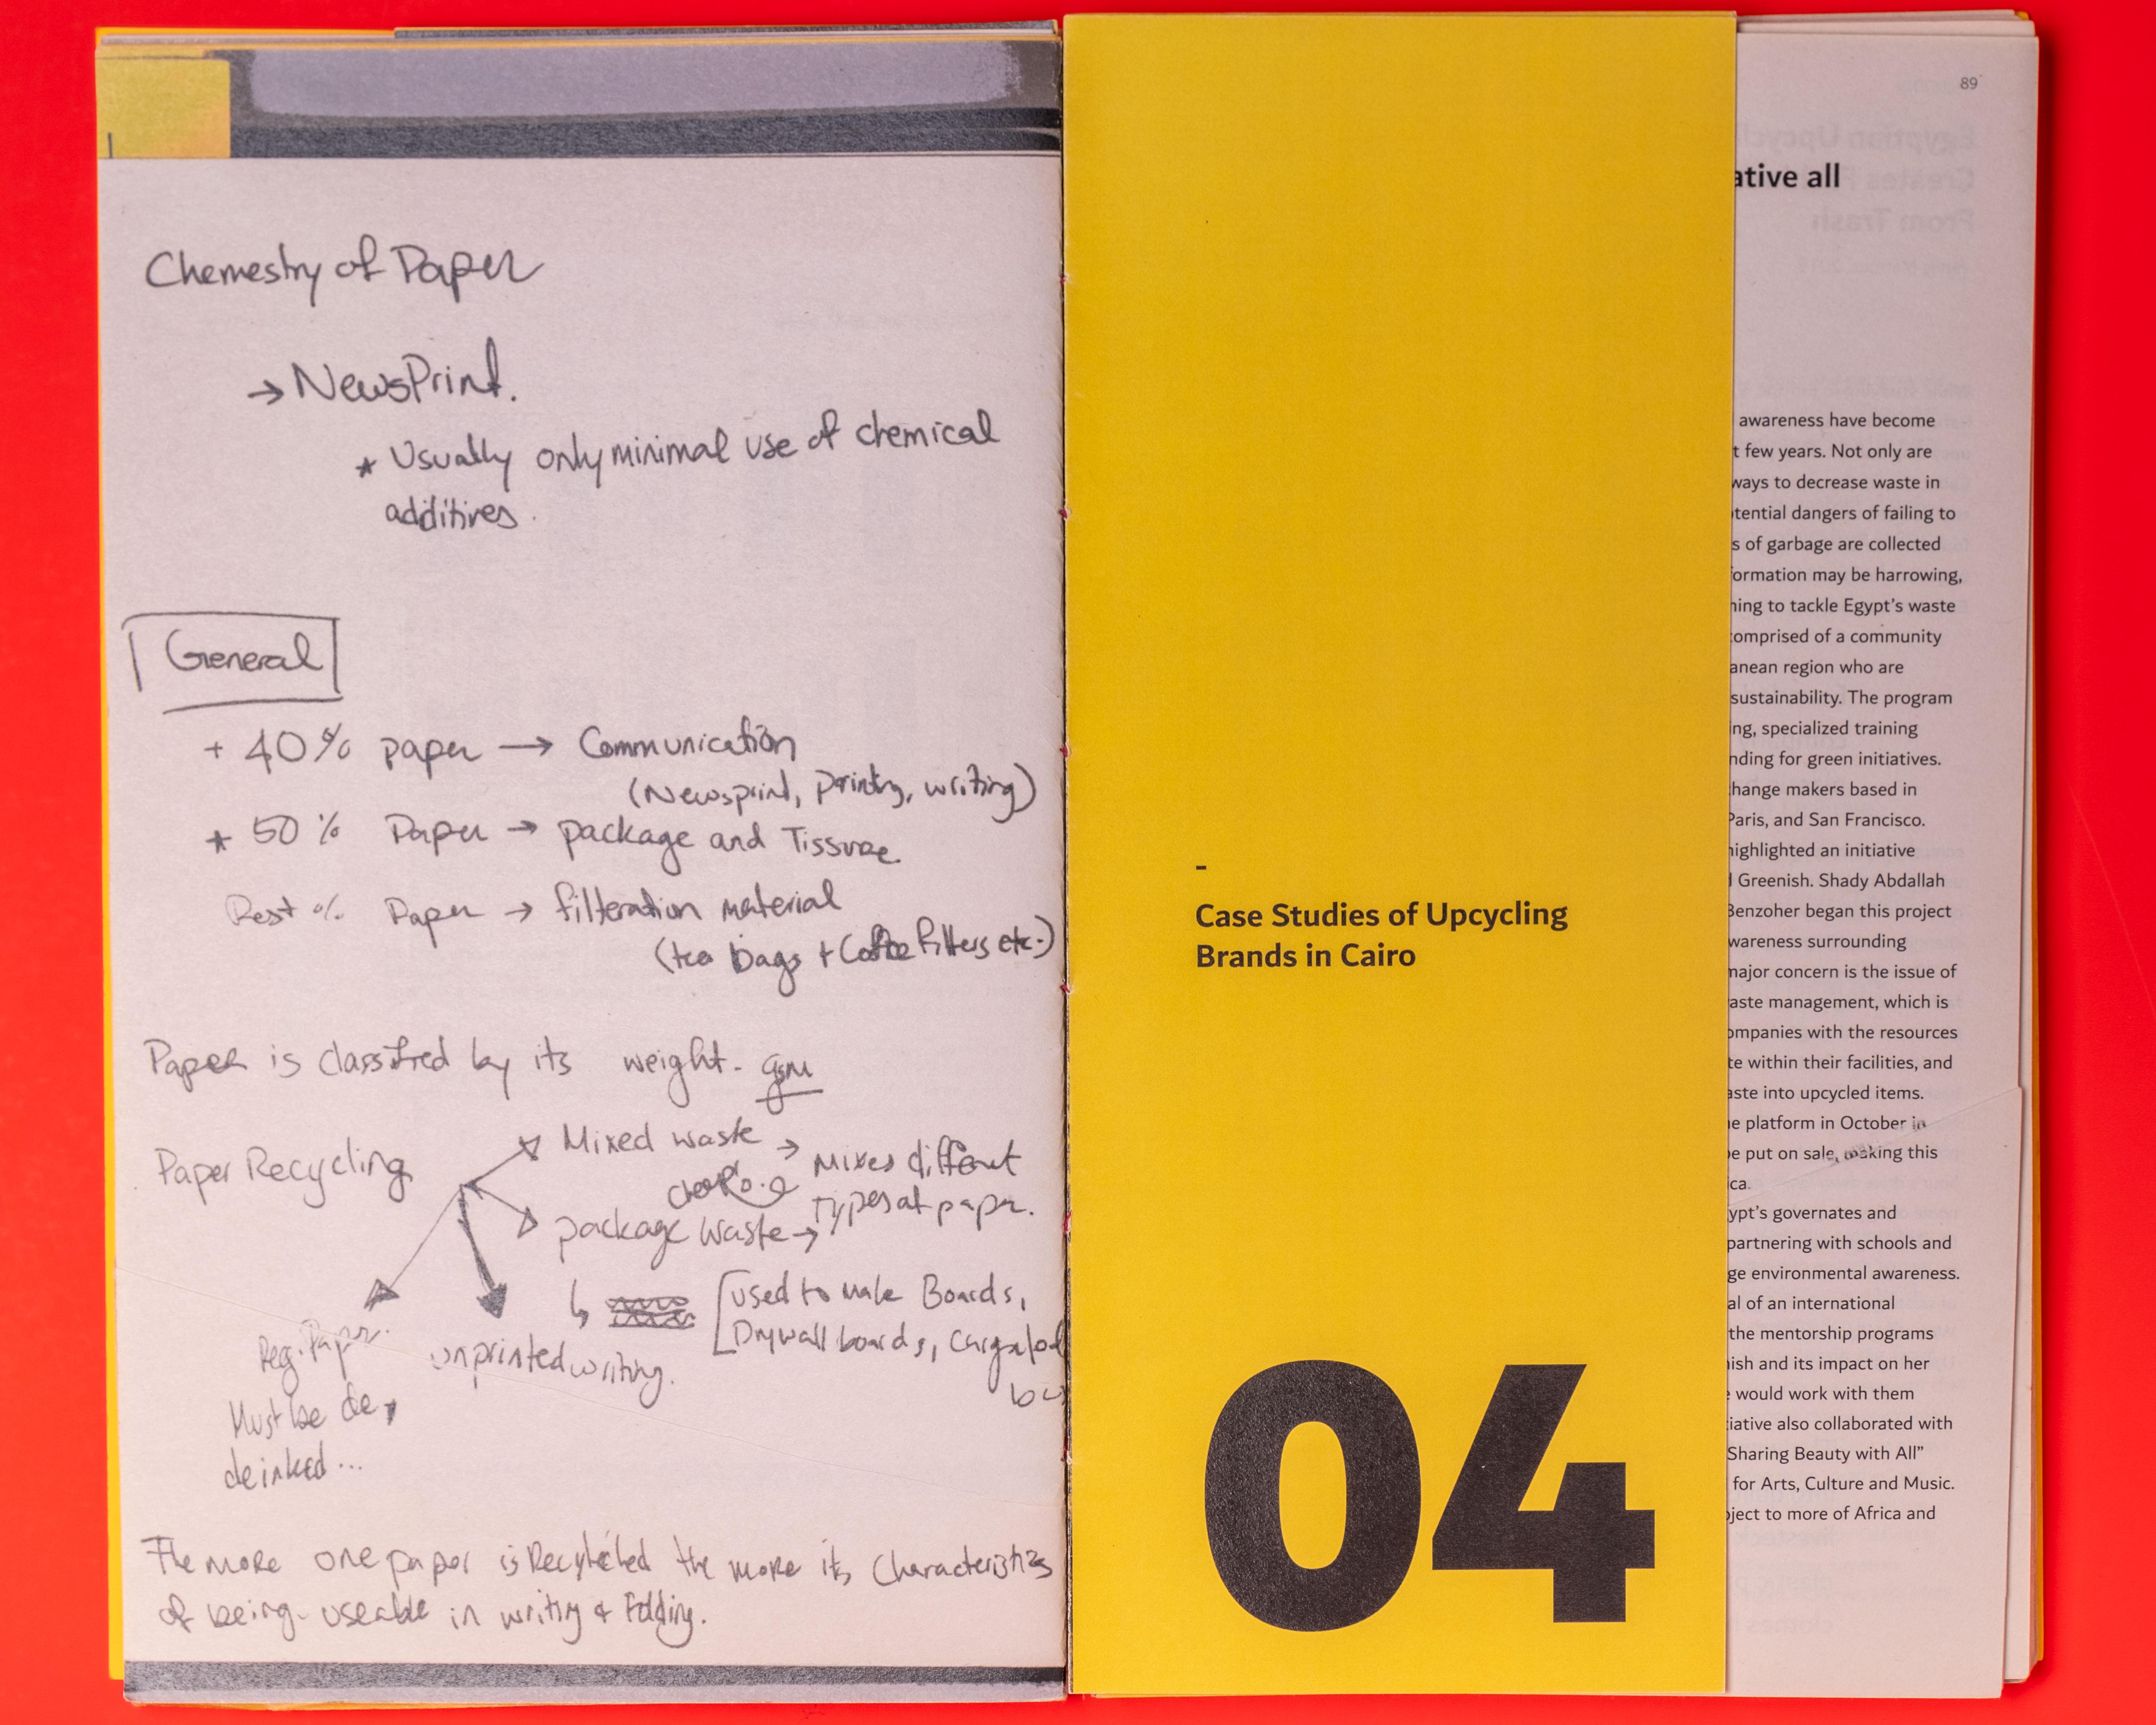 Chemestry of Paper
→ NewsPrint.
* Usually only minimal use of chemical
additives.
General
+ 40% paper → Communication
(Newsprint, printng, writing)
* 50% Paper → package and Tissure
Rest % Paper → filteration material
(tea bags + Coffee filters etc.)
Paper is classified by its weight - gsm
Paper Recycling
Mixed waste →
Mixes different
types of paper.
package Waste →
↳ [used to make Boards,
Drywall boards,
Reg. Paper.
Must be de,
deinked...
unprinted writing.
The more one paper is Recyteled the more its Characteristics
of being useable in writing & Folding.
-
Case Studies of Upcycling
Brands in Cairo
04
89
ative all
awareness have become
t few years. Not only are
ways to decrease waste in
tential dangers of failing to
s of garbage are collected
ormation may be harrowing,
ning to tackle Egypt's waste
comprised of a community
anean region who are
sustainability. The program
ing, specialized training
nding for green initiatives.
hange makers based in
Paris, and San Francisco.
highlighted an initiative
l Greenish. Shady Abdallah
Benzoher began this project
wareness surrounding
major concern is the issue of
aste management, which is
ompanies with the resources
te within their facilities, and
aste into upcycled items.
e platform in October in
e put on sale, making this
ca.
ypt's governates and
partnering with schools and
ge environmental awareness.
al of an international
the mentorship programs
ish and its impact on her
e would work with them
iative also collaborated with
Sharing Beauty with All"
for Arts, Culture and Music.
ject to more of Africa and